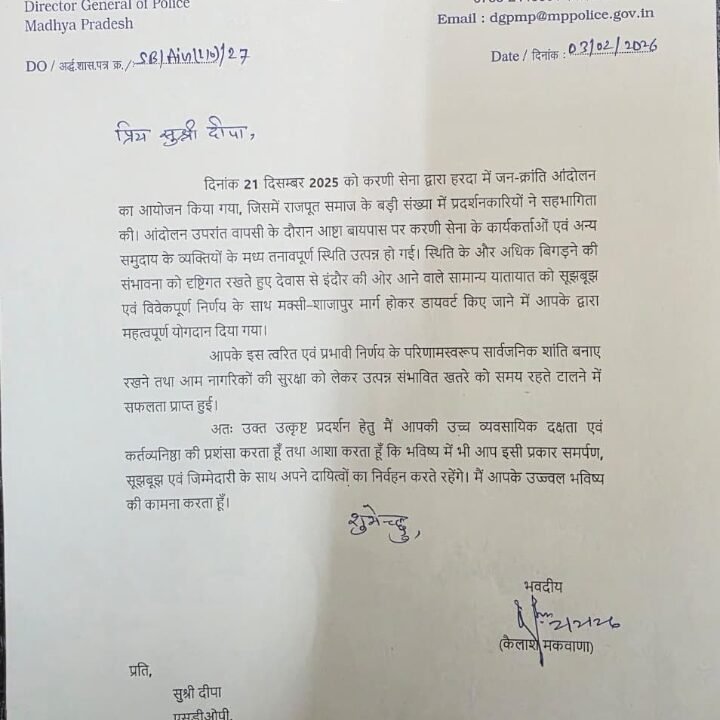 Director General of Police
Madhya Pradesh
Email : dgpmp@mppolice.gov.in
DO / अर्द्ध.शास.पत्र क्र./:
Date / दिनांक : 03/02/2026
प्रिय सुश्री दीपा,
दिनांक 21 दिसम्बर 2025 को करणी सेना द्वारा हरदा में जन-क्रांति आंदोलन
का आयोजन किया गया, जिसमें राजपूत समाज के बड़ी संख्या में प्रदर्शनकारियों ने सहभागिता
की। आंदोलन उपरांत वापसी के दौरान आष्टा बायपास पर करणी सेना के कार्यकर्ताओं एवं अन्य
समुदाय के व्यक्तियों के मध्य तनावपूर्ण स्थिति उत्पन्न हो गई। स्थिति के और अधिक बिगड़ने की
संभावना को दृष्टिगत रखते हुए देवास से इंदौर की ओर आने वाले सामान्य यातायात को सूझबूझ
एवं विवेकपूर्ण निर्णय के साथ मक्सी–शाजापुर मार्ग होकर डायवर्ट किए जाने में आपके द्वारा
महत्वपूर्ण योगदान दिया गया।
आपके इस त्वरित एवं प्रभावी निर्णय के परिणामस्वरूप सार्वजनिक शांति बनाए
रखने तथा आम नागरिकों की सुरक्षा को लेकर उत्पन्न संभावित खतरे को समय रहते टालने में
सफलता प्राप्त हुई।
अतः उक्त उत्कृष्ट प्रदर्शन हेतु मैं आपकी उच्च व्यवसायिक दक्षता एवं
कर्तव्यनिष्ठा की प्रशंसा करता हूँ तथा आशा करता हूँ कि भविष्य में भी आप इसी प्रकार समर्पण,
सूझबूझ एवं जिम्मेदारी के साथ अपने दायित्वों का निर्वहन करते रहेंगे। मैं आपके उज्ज्वल भविष्य
की कामना करता हूँ।
भवदीय
(कैलाश मकवाणा)
प्रति,
सुश्री दीपा
एसडीओपी,